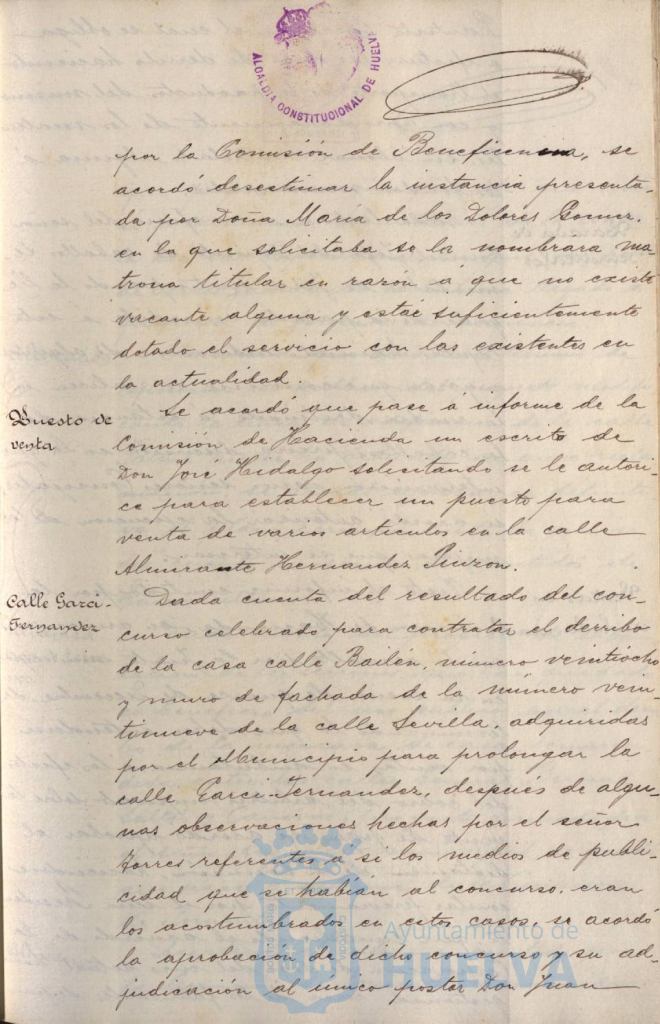 ALCALDIA CONSTITUCIONAL DE HUELVA
por la Comisión de Beneficencia, se
acordó desestimar la instancia presenta-
da por Doña María de los Dolores Gomez,
en la que solicitaba se la nombrara ma-
trona titular en razón á que no existe
vacante alguna y estár suficientemente
dotado el servicio con las existentes en
la actualidad.
Puesto de
venta
Se acordó que pase á informe de la
Comisión de Hacienda un escrito de
Don José Hidalgo solicitando se le autori-
ce para establecer un puesto para
venta de varios artículos en la calle
Almirante Hernandez Pinzon.
Calle Garci-
Fernandez
Dada cuenta del resultado del con-
curso celebrado para contratar el derribo
de la casa calle Bailén, número veintiocho
y muro de fachada de la número vein-
tinueve de la calle Sevilla, adquiridas
por el Municipio para prolongar la
calle Garci-Fernandez, después de algu-
nas observaciones hechas por el señor
Torres referentes á si los medios de publi-
cidad que se habían al concurso, eran
los acostumbrados en estos casos, se acordó
la aprobación de dicho concurso y su ad-
judicación al único postor Don Juan
Ayuntamiento de
HUELVA